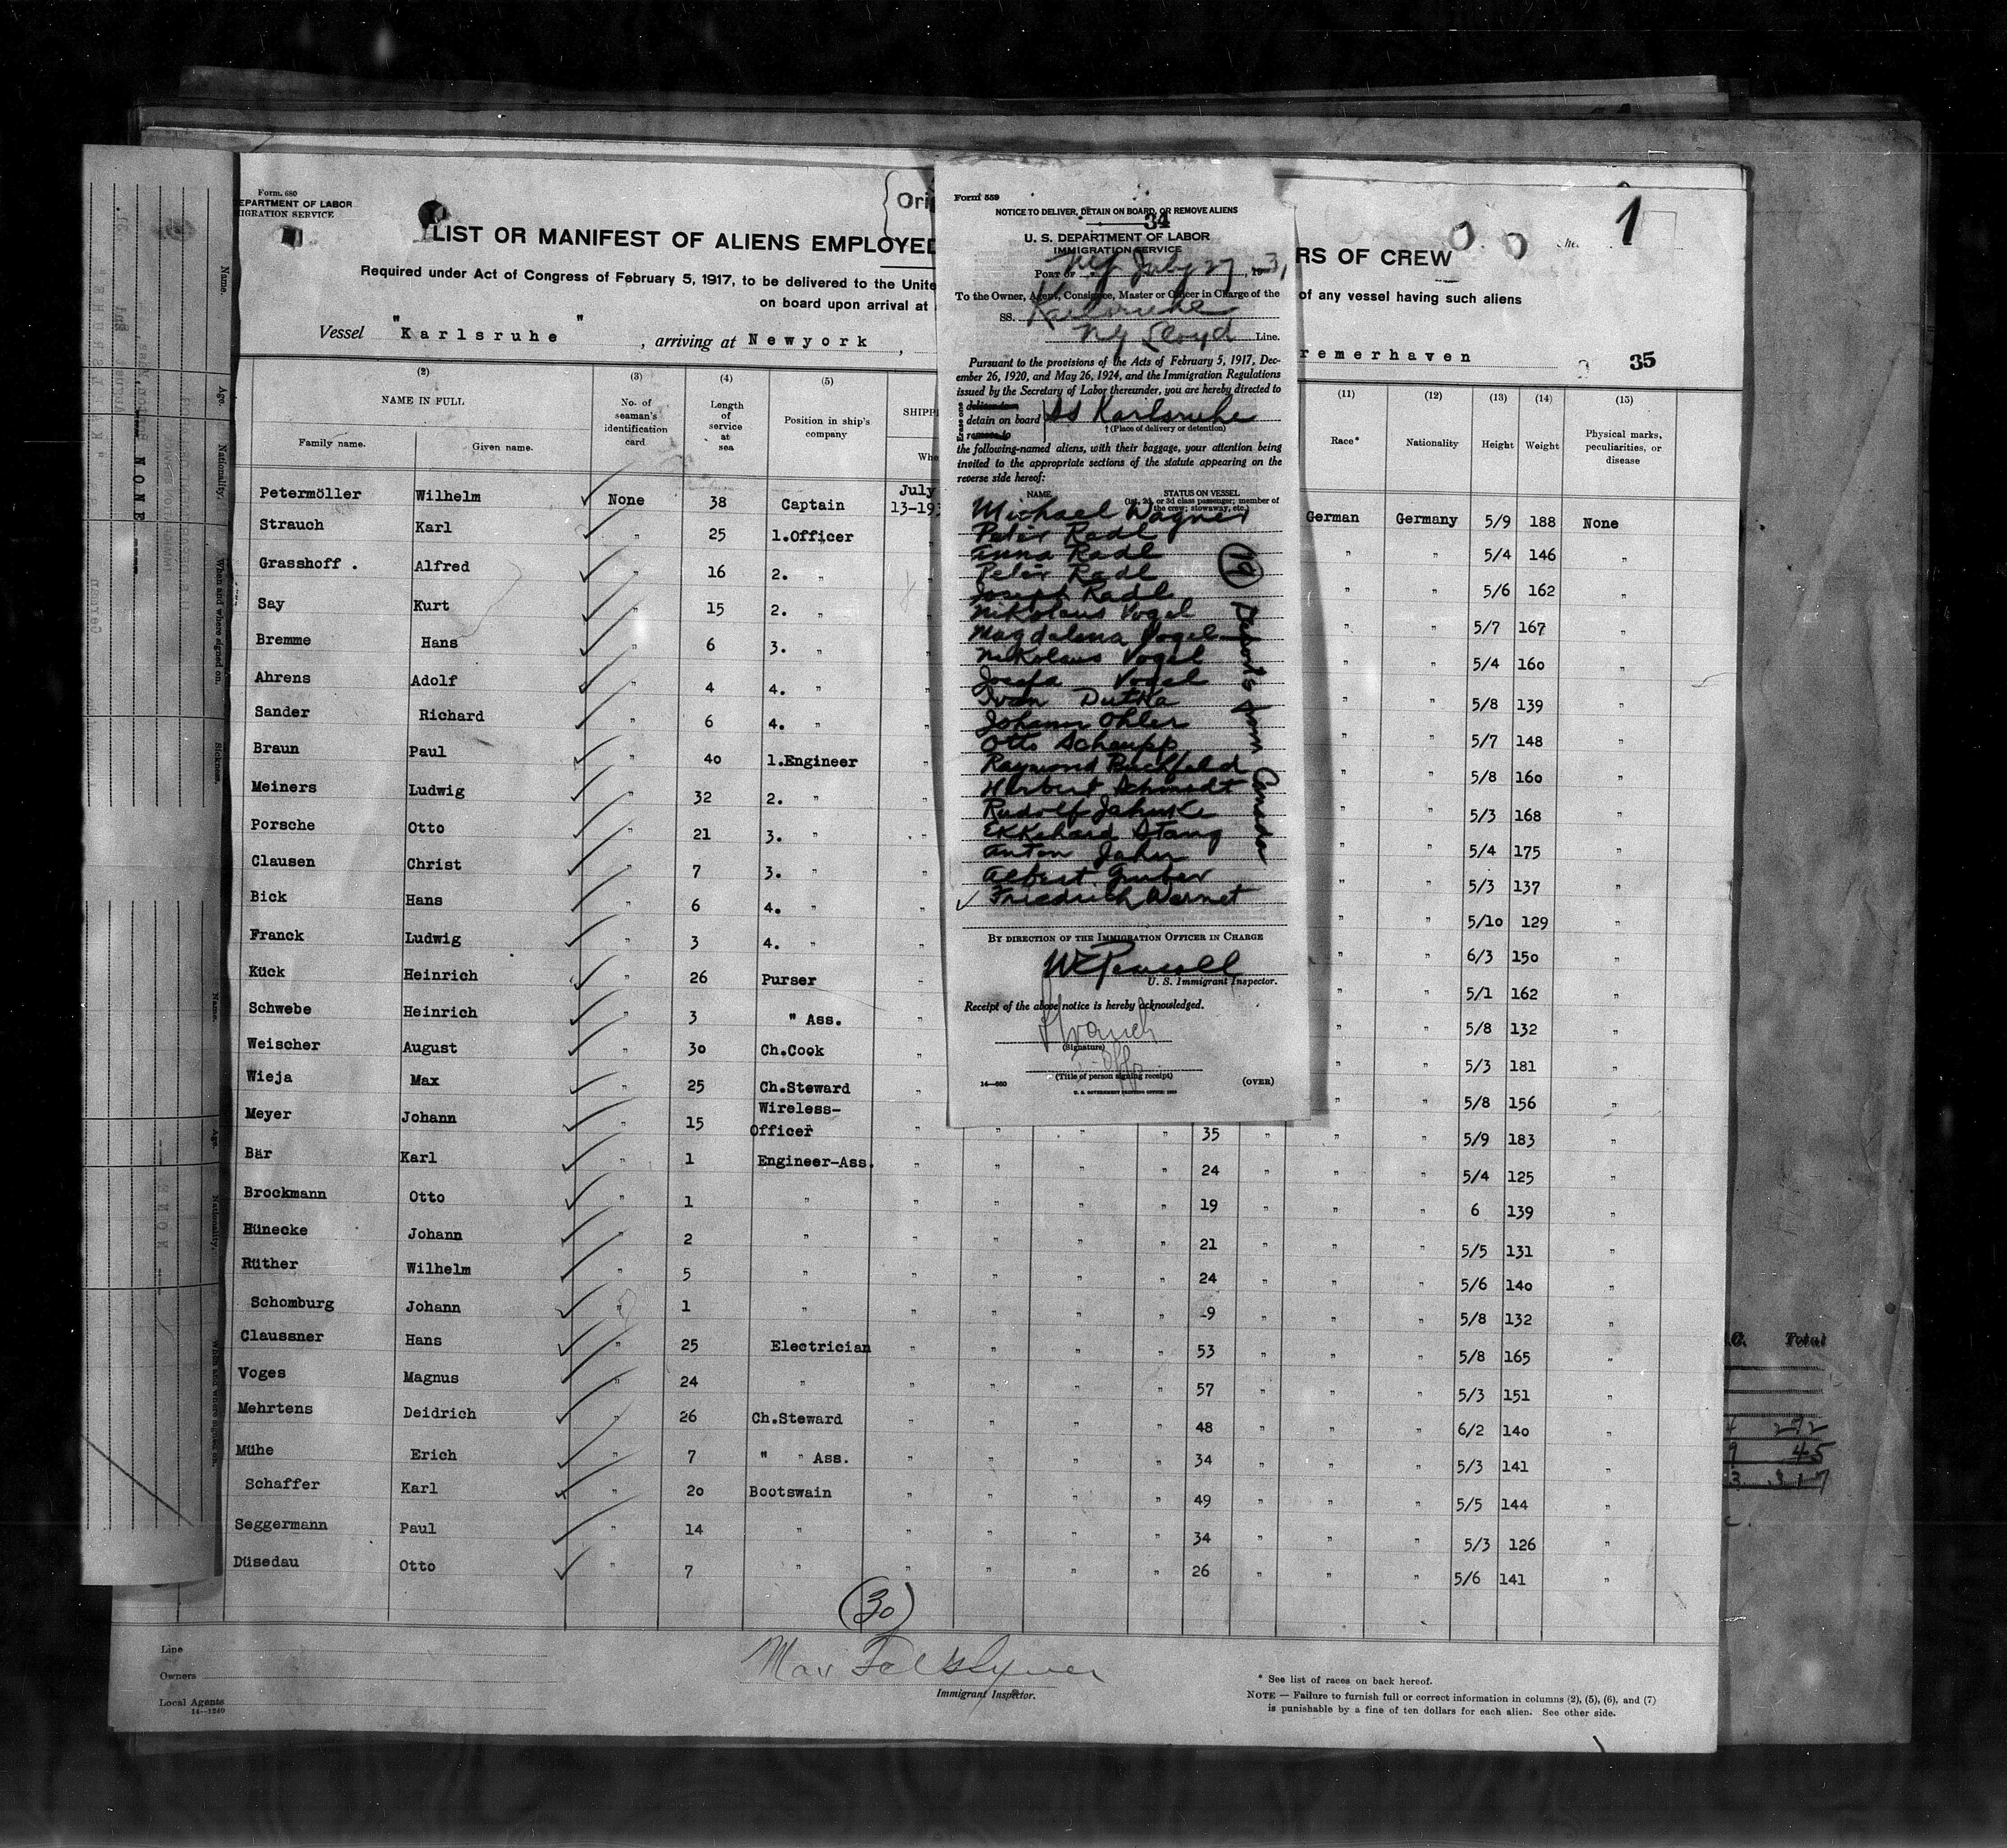 Form. 680
EPARTMENT OF LABOR
IGRATION SERVICE
Ori
1
LIST OR MANIFEST OF ALIENS EMPLOYED
RS OF CREW
Required under Act of Congress of February 5, 1917, to be delivered to the Unite
of any vessel having such aliens
on board upon arrival at
Vessel "Karlsruhe" , arriving at Newyork ,
remerhaven
35
(2) (3) (4) (5) (11) (12) (13) (14) (15)
NAME IN FULL
Family name. Given name.
No. of seaman's identification card
Length of service at sea
Position in ship's company
SHIPP
Whe
Race* Nationality Height Weight Physical marks, peculiarities, or disease
Petermöller Wilhelm None 38 Captain July 13-193 German Germany 5/9 188 None
Strauch Karl " 25 1.Officer " " " 5/4 146 "
Grasshoff . Alfred " 16 2. " " " " 5/6 162 "
Say Kurt " 15 2. " " " " 5/7 167 "
Bremme Hans " 6 3. " " " " 5/4 160 "
Ahrens Adolf " 4 4. " " " " 5/8 139 "
Sander Richard " 6 4. " " " " 5/7 148 "
Braun Paul " 40 1.Engineer " " " 5/8 160 "
Meiners Ludwig " 32 2. " " " " 5/3 168 "
Porsche Otto " 21 3. " " " " 5/4 175 "
Clausen Christ " 7 3. " " " " 5/3 137 "
Bick Hans " 6 4. " " " " 5/10 129 "
Franck Ludwig " 3 4. " " " " 6/3 150 "
Kück Heinrich " 26 Purser " " " 5/1 162 "
Schwebe Heinrich " 3 " Ass. " " " 5/8 132 "
Weischer August " 30 Ch.Cook " " " 5/3 181 "
Wieja Max " 25 Ch.Steward " " " 5/8 156 "
Meyer Johann " 15 Wireless-Officer " " " " 35 " " " 5/9 183 "
Bär Karl " 1 Engineer-Ass. " " " " 24 " " " 5/4 125 "
Brockmann Otto " 1 " " " " " 19 " " " 6 139 "
Hünecke Johann " 2 " " " " " 21 " " " 5/5 131 "
Rüther Wilhelm " 5 " " " " " 24 " " " 5/6 140 "
Schomburg Johann " 1 " " " " " -9 " " " 5/8 132 "
Claussner Hans " 25 Electrician " " " " 53 " " " 5/8 165 "
Voges Magnus " 24 " " " " " 57 " " " 5/3 151 "
Mehrtens Deidrich " 26 Ch.Steward " " " " 48 " " " 6/2 140 "
Mühe Erich " 7 " " Ass. " " " " 34 " " " 5/3 141 "
Schaffer Karl " 20 Bootswain " " " " 49 " " " 5/5 144 "
Seggermann Paul " 14 " " " " " 34 " " " 5/3 126 "
Düsedau Otto " 7 " " " " " 26 " " " 5/6 141 "
(30)
Line
Owners
Local Agents
14—1240
Immigrant Inspector.
* See list of races on back hereof.
NOTE — Failure to furnish full or correct information in columns (2), (5), (6), and (7)
is punishable by a fine of ten dollars for each alien. See other side.
Form 559
NOTICE TO DELIVER, DETAIN ON BOARD, OR REMOVE ALIENS
34
U. S. DEPARTMENT OF LABOR
IMMIGRATION SERVICE
PORT OF NY July 27, 1931
To the Owner, Agent, Consignee, Master or Officer in Charge of the
SS. Karlsruhe
NG Lloyd Line.
Pursuant to the provisions of the Acts of February 5, 1917, Dec-
ember 26, 1920, and May 26, 1924, and the Immigration Regulations
issued by the Secretary of Labor thereunder, you are hereby directed to
Erase one
deliver to
detain on board SS Karlsruhe
remove to
† (Place of delivery or detention)
the following-named aliens, with their baggage, your attention being
invited to the appropriate sections of the statute appearing on the
reverse side hereof:
NAME STATUS ON VESSEL
(1st, 2d, or 3d class passenger; member of
the crew; stowaway, etc.)
Michael Wagner
Peter Radl
Anna Radl
Peter Radl
Joseph Radl
Nikolaus Vogel
Magdalena Vogel
Nikolaus Vogel
Josefa Vogel
Ivan Dutka
Johann Ohler
Otto Schaupp
Raymond Buchfeld
Herbert Schmidt
Rudolf Jahnke
Ekkehard Stang
Anton Jahn
Albert Gruber
Friedrich Wernet
(19) Deports from Canada
BY DIRECTION OF THE IMMIGRATION OFFICER IN CHARGE
U. S. Immigrant Inspector.
Receipt of the above notice is hereby acknowledged.
Strauch
(Signature)
(Title of person signing receipt)
14—660 (OVER)
U. S. GOVERNMENT PRINTING OFFICE
Name. Age. Nationality. When and where signed on. Sickness.
NONE
Name. Age. Nationality. When and where signed on.
Total
272
45
317